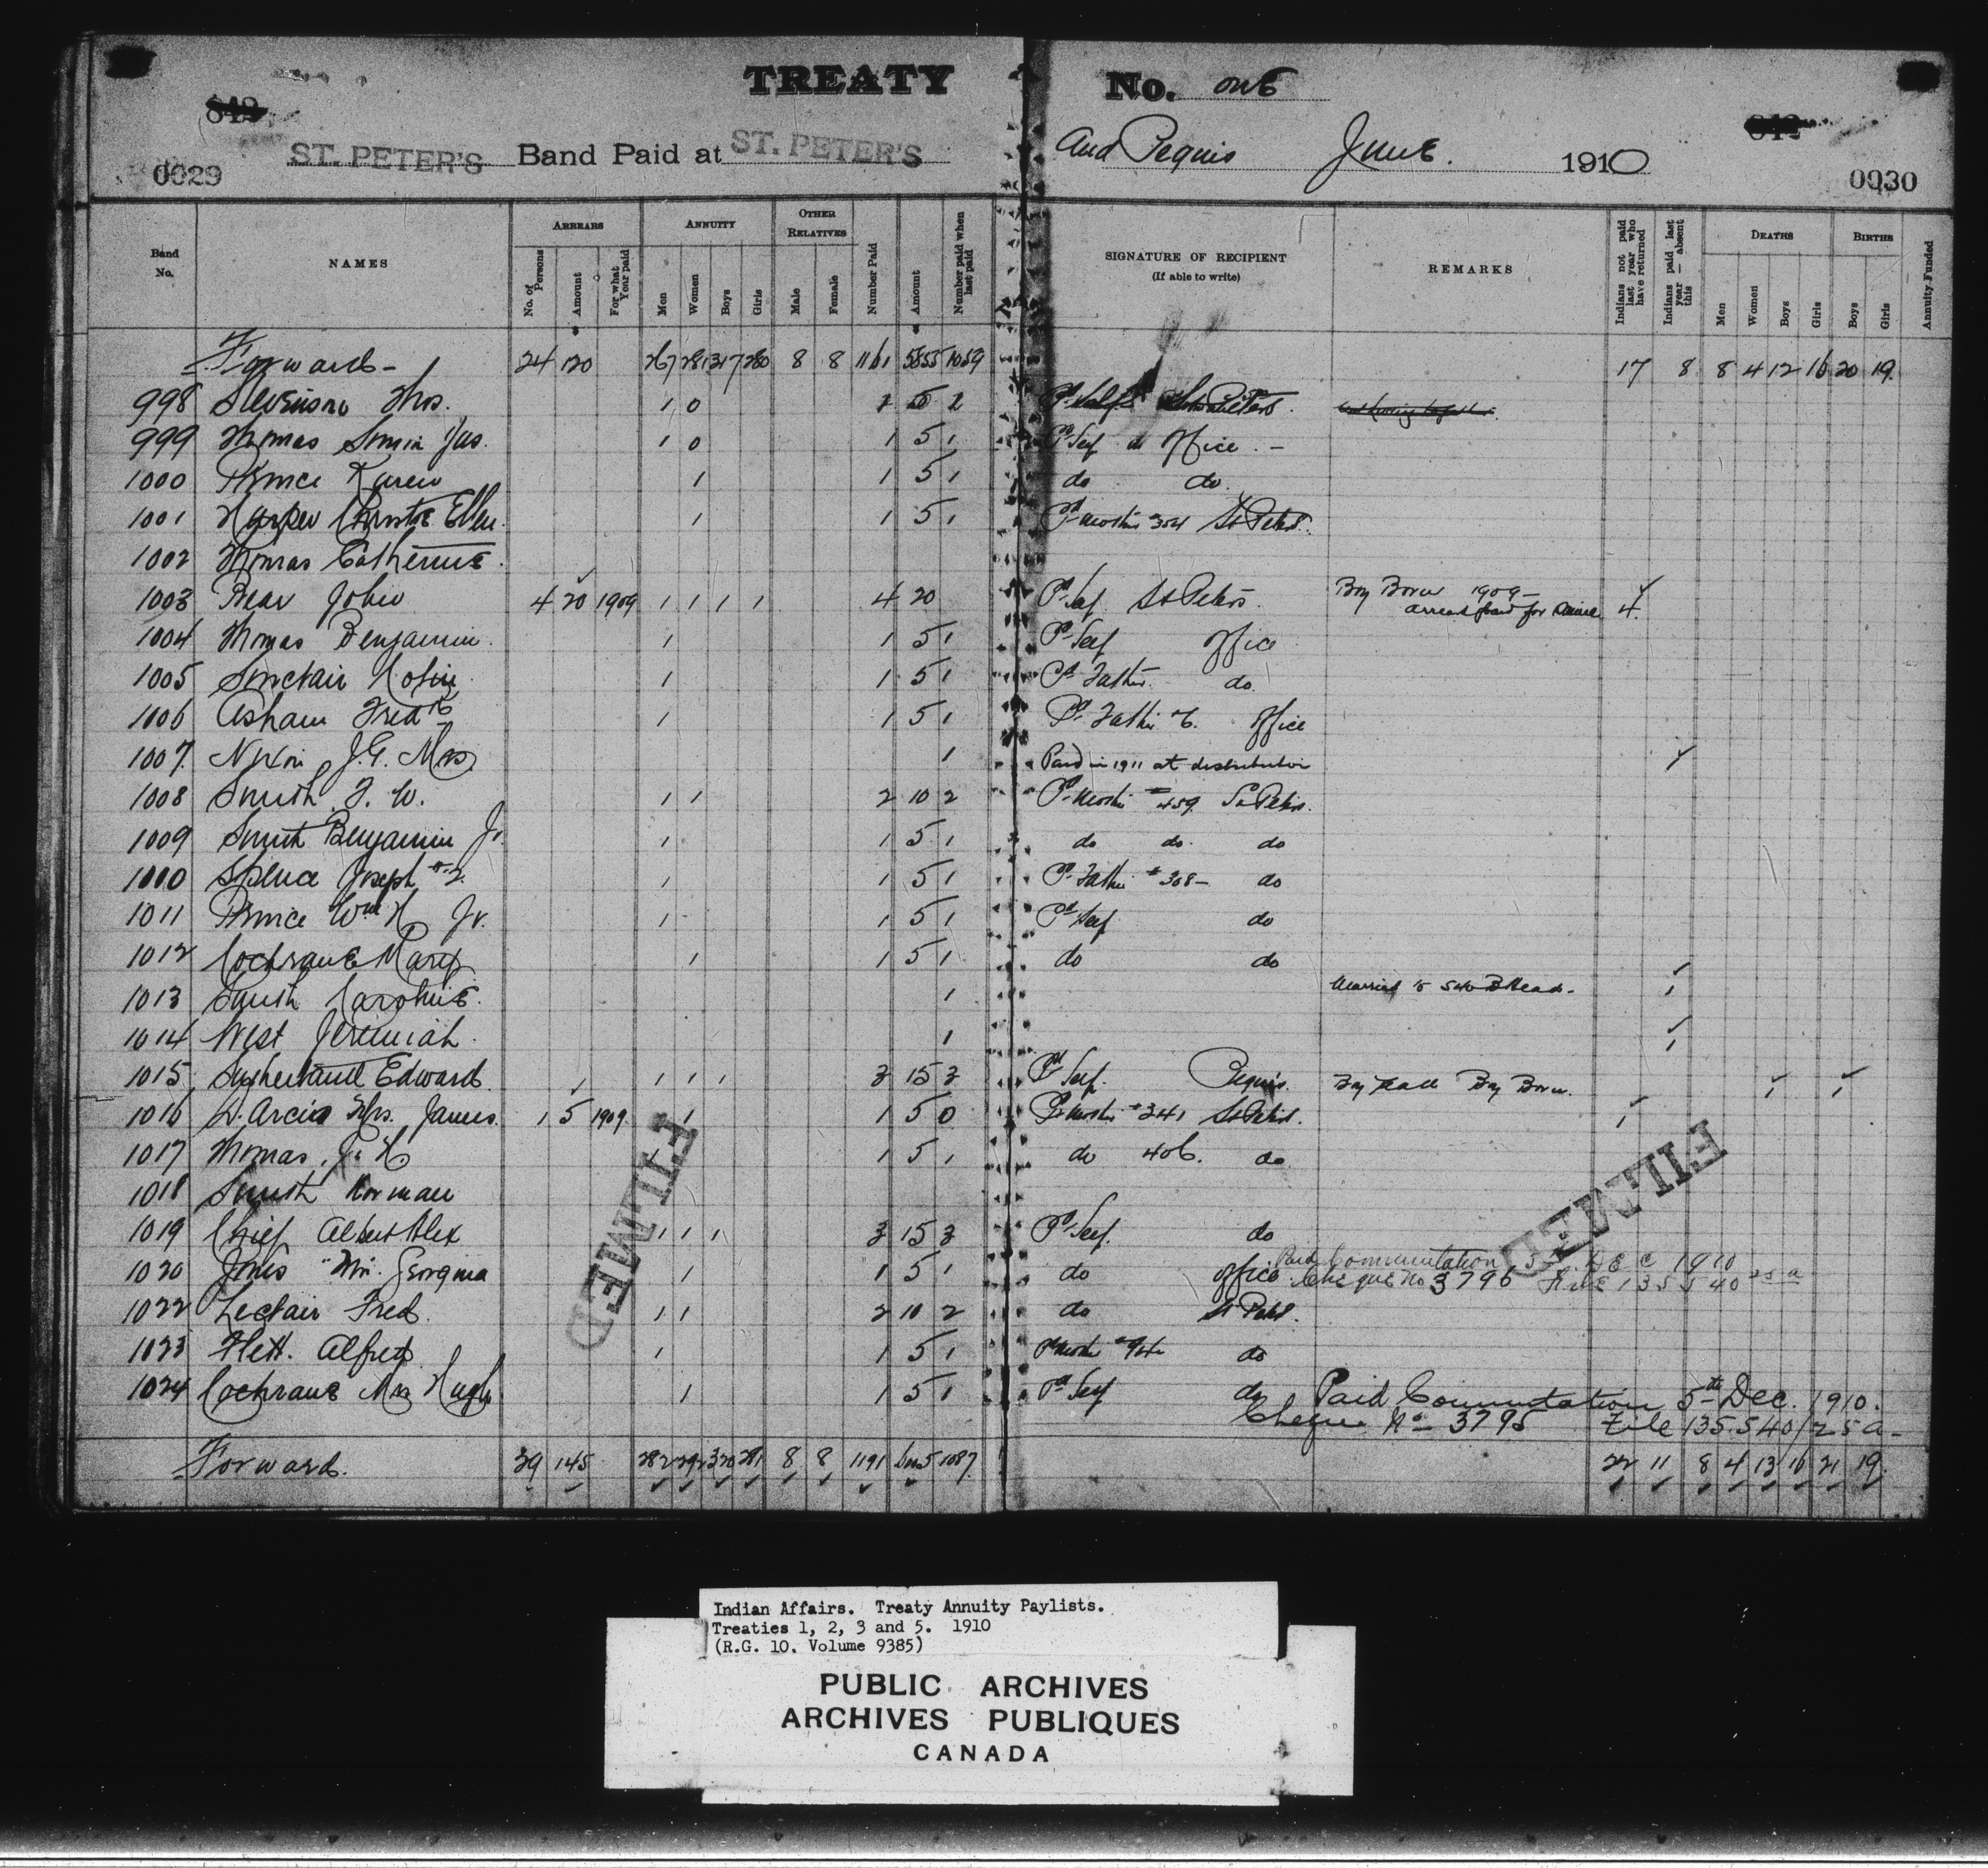 TREATY No. one
ST. PETER'S Band Paid at ST. PETER'S and Peguis June. 1910
0029 0030
Band No. NAMES ARREARS ANNUITY OTHER RELATIVES Number Paid Amount Number paid when last paid SIGNATURE OF RECIPIENT (If able to write) REMARKS Indians not paid last year who have returned Indians paid last year — absent this DEATHS BIRTHS Annuity Funded
No. of Persons Amount For what Year paid Men Women Boys Girls Male Female Men Women Boys Girls Boys Girls
Forward - 24 120 267 281 317 280 8 8 1161 5855 1059 17 8 8 4 12 16 20 19
998 Stevenson Thos. 1 0 5 2 Pd Self
999 Thomas Jas. 1 0 1 5 1 Pd Self do office -
1000 Prince Karen 1 1 5 1 do do
1001 Harper Ellen 1 1 5 1 Pd Mother 304 St Peters
1002 Thomas Catherine
1003 Bear John 4 20 1909 1 1 1 1 4 20 Pd Self St Peters. Boy Born 1909 - arrears paid for 4
1004 Thomas Benjamin 1 1 5 1 Pd Self office
1005 Sinclair 1 1 5 1 Pd Father do
1006 Asham Fredk 1 1 5 1 Pd Father office
1007 Nixon J.G. Mrs. 1 Paid in 1911 at distribution
1008 Smith F. W. 1 1 2 10 2 Pd Mother #459 St Peters.
1009 Smith Benjamin Jr. 1 1 5 1 do do do
1010 Spence Joseph #2 1 1 5 1 Pd Father #308 - do
1011 Prince Wm H Jr. 1 1 5 1 Pd Self do
1012 Cochrane Mary 1 1 5 1 do do
1013 Smith Caroline 1 Married to 1
1014 West Jeremiah 1 1
1015 Sutherland Edward 1 1 1 3 15 3 Pd Self. Peguis. Boy dead Boy Born. 1 1
1016 D'Arcis Mrs. James. 1 5 1909 1 1 5 0 Pd Mother #341 St Peters. 1
1017 Thomas, H 1 1 5 1 do 406. do
1018 Smith Norman
1019 Chief Albert Alex 1 1 1 3 15 3 Pd Self. do
1020 Jones Georgina 1 1 5 1 do office Paid Commutation 5th Dec 1910
Cheque No 3796 File 135540 25a
1022 Leclair Fred. 1 1 2 10 2 do St Peters.
1023 Flett. Alfred 1 1 5 1 Pd Mother do
1024 Cochrane Mrs Hugh 1 1 5 1 Pd Self do Paid Commutation 5th Dec. 1910.
Cheque No - 3795 File 135.540/25a -
Forward. 29 145 282 292 320 281 8 8 1191 1087 22 11 8 4 13 16 21 19.
FILMED
FILMED
Indian Affairs. Treaty Annuity Paylists.
Treaties 1, 2, 3 and 5. 1910
(R.G. 10. Volume 9385)
PUBLIC ARCHIVES
ARCHIVES PUBLIQUES
CANADA